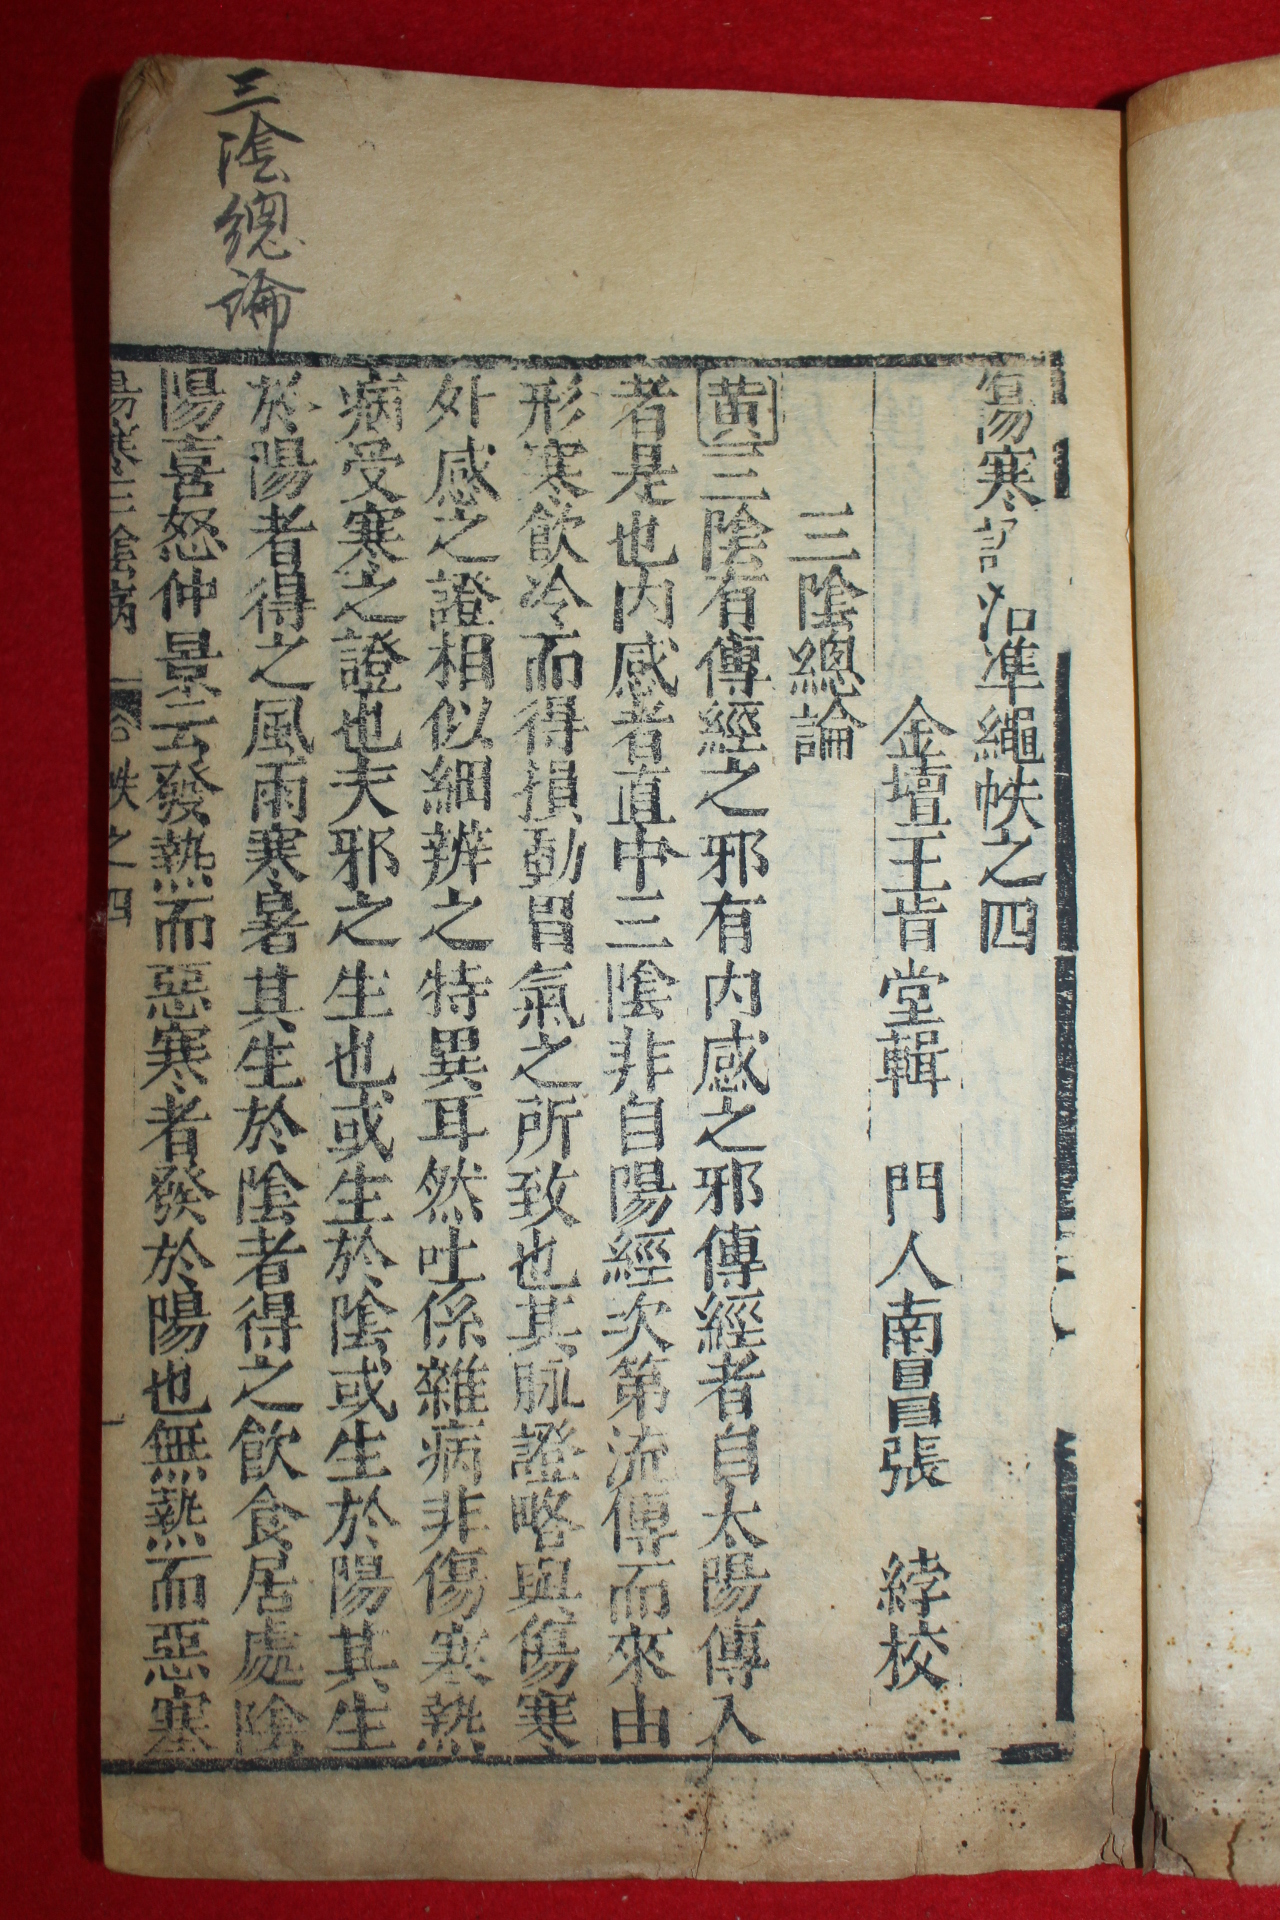 三陰總論
傷寒証治準繩帙之四
金壇王肯堂輯　門人南昌張　綍校
三陰總論
黄三陰有傳經之邪有内感之邪傳經者自太陽傳入
者是也内感者直中三陰非自陽經次第流傳而來由
形寒飲冷而得損動胃氣之所致也其脉證略與傷寒
外感之證相似細辨之特異耳然吐係雜病非傷寒熱
病受寒之證也夫邪之生也或生於陰或生於陽其生
於陽者得之風雨寒暑其生於陰者得之飲食居處陰
陽喜怒仲景云發熱而惡寒者發於陽也無熱而惡寒
傷寒三陰病　帙之四　一